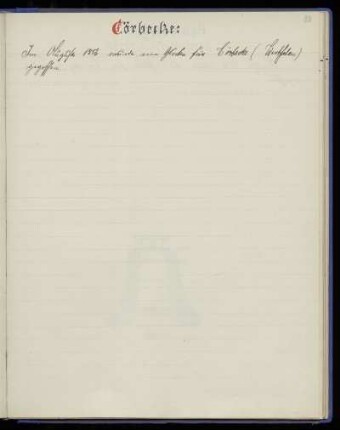 Cörbecke:
Im August 1876 wurde eine Glocke für Cörbecke (Westfalen)
gegossen